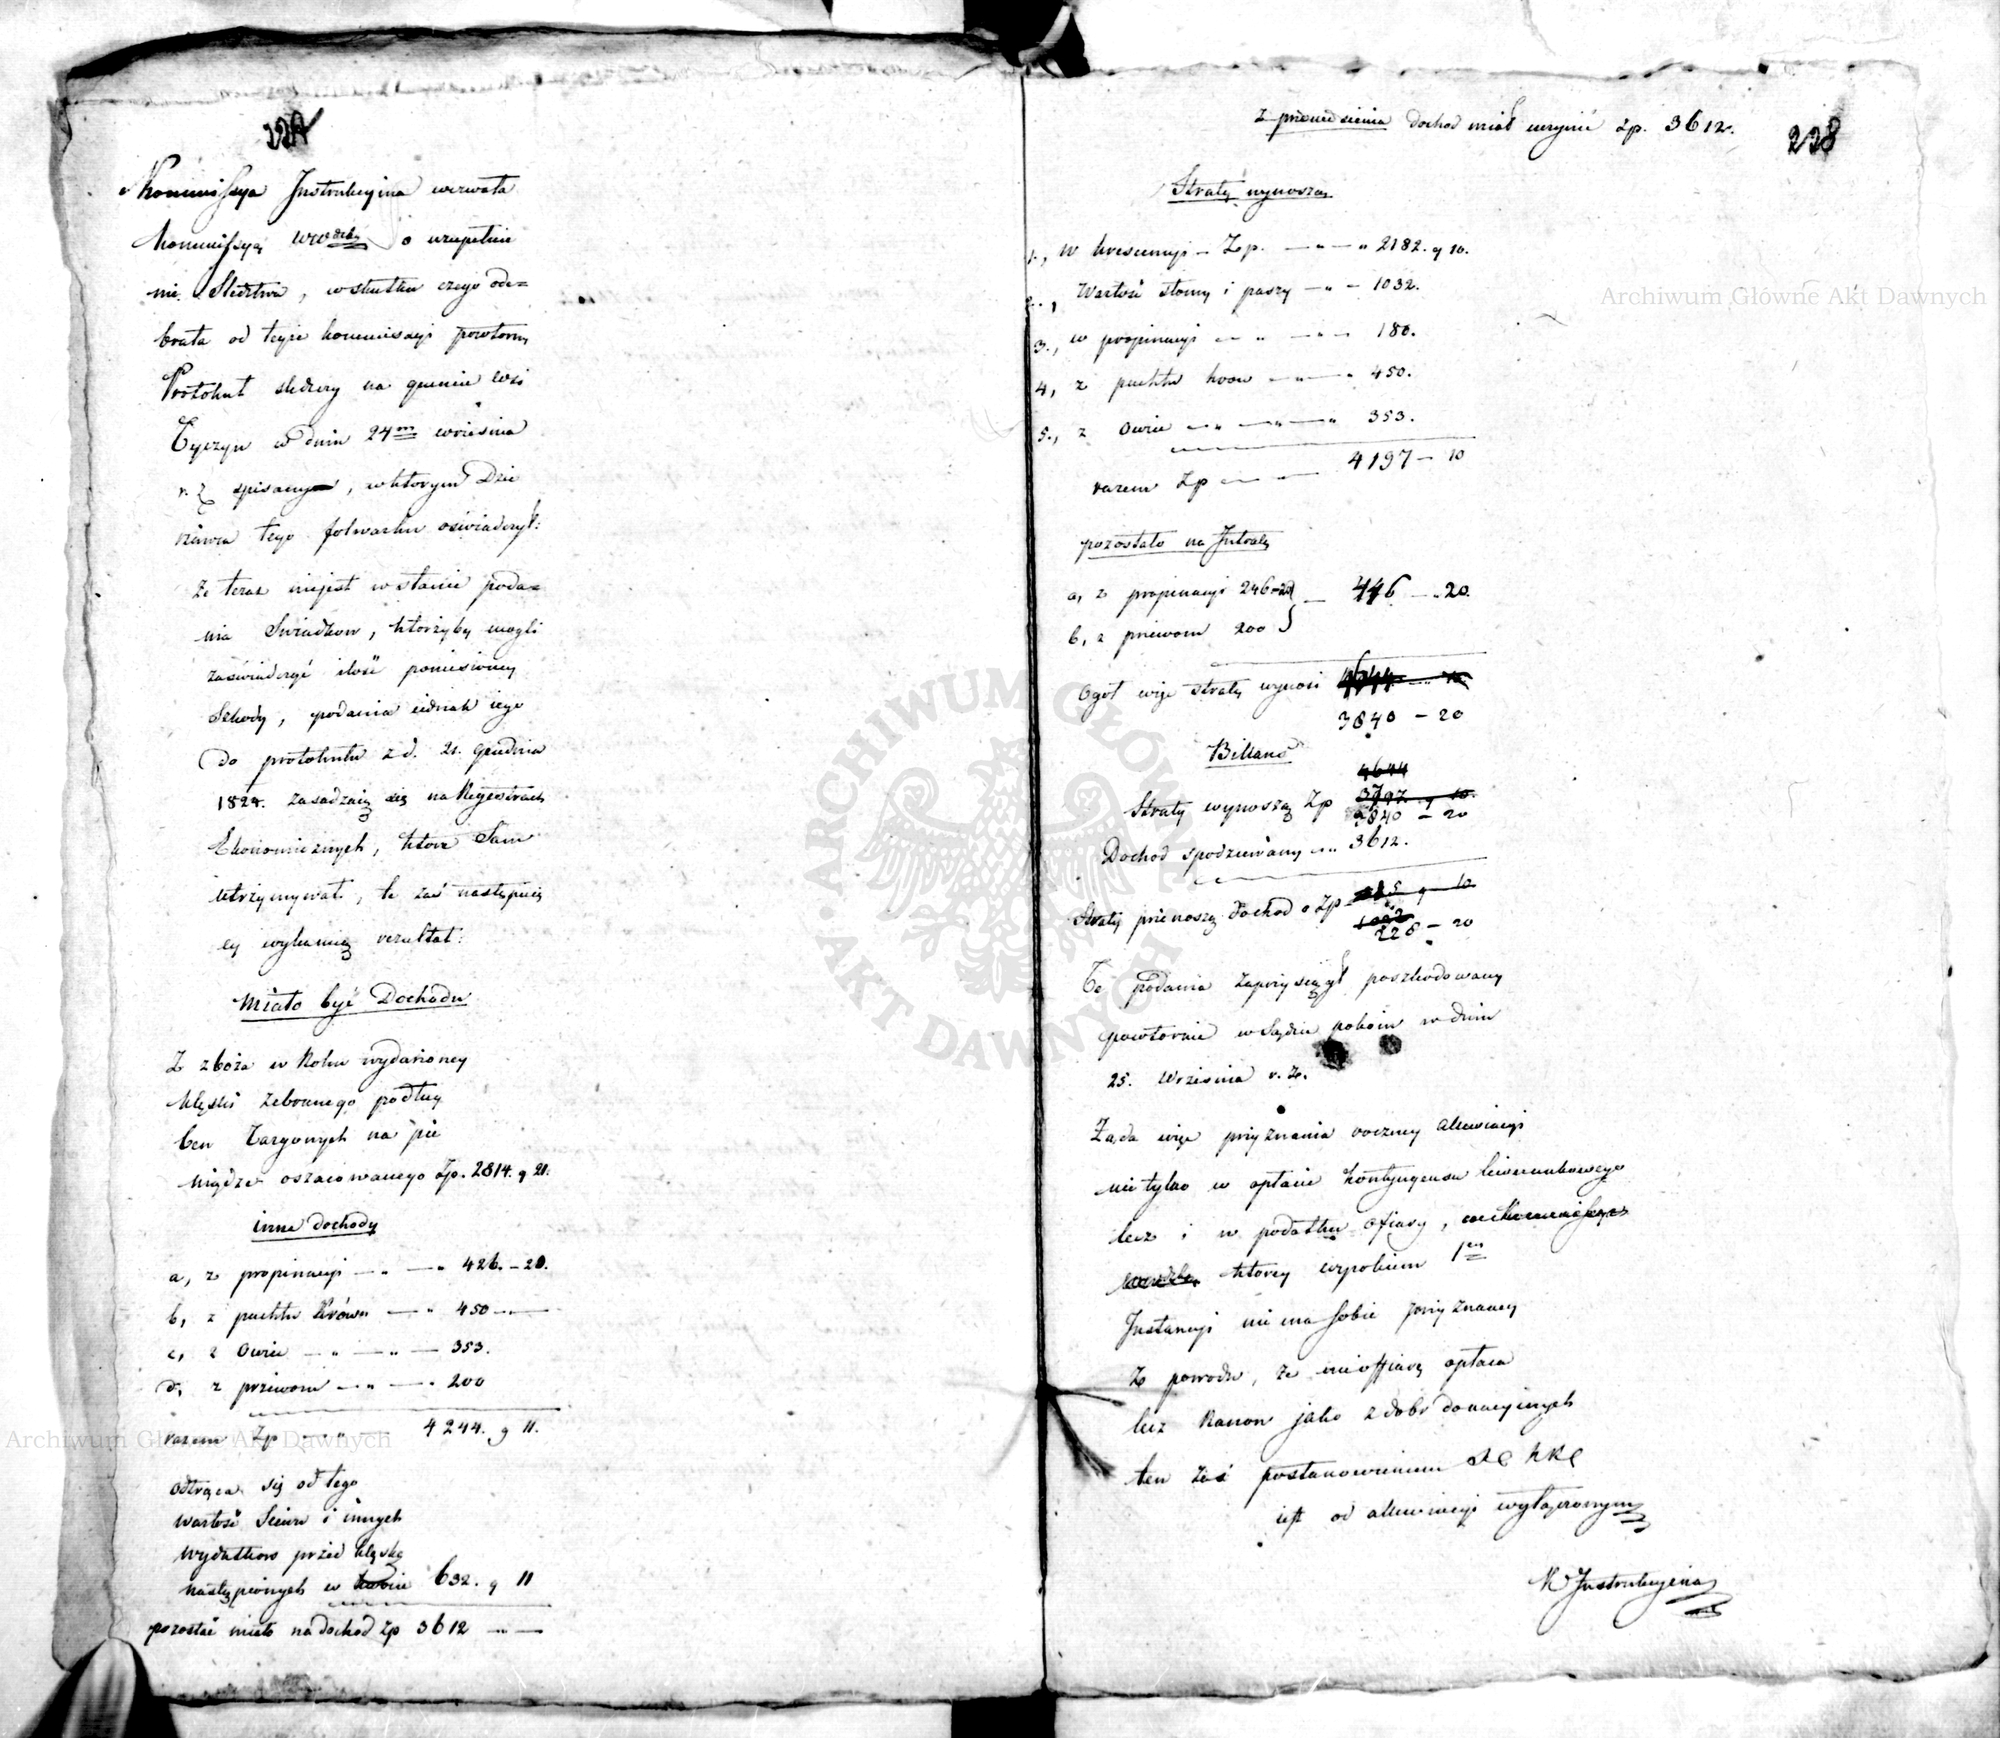 Kommissya Instrukcyina wezwała
Kommissyą Wwdzką o uzupełnie
nie Sledztwa, wskutku czego ode=
brała od teyże kommissyi powtorny
Protokuł sledczy na gruncie wsi
Tyczyn w dniu 24m września
r. z. spisany, w ktorym Dzie
rżawca tego folwarku oświadczył:
że teraz niejest w stanie poda=
nia Swiadkow, ktorzyby mogli
zaświadczyć ilość poniesioney
Szkody, podania iednak iego
do protokułu z d. 21. Grudnia
1824. zasadzaią się na Regestrach
Ekonomicznych, ktore Sam
utrzymywał, te zaś następuią
cy wykazuią rezultat:
Miało być Dochodu
Z zboża w Roku wydarzoney
klęski zebranego podług
Cen Targowych na pie
niądze oszacowanego Zp. 2814. g 21.
inne dochody
a, z propinacyi — „ — „ 426. – 20.
b, z pachtu Krów — „ 450 —
c, z Owiec — „ — „ — 353.
d, z przewozu — „ — . 200
razem Zp — „ — 4244. g 11.
odtrąca się od tego
wartość Siewu i innych
wydatkow przed klęską
nastąpionych w 632. g 11
pozostać miało na dochod Zp 3612 „ —
z przeniesienia dochod miał uczynić zp. 3612.
228
Straty wynoszą
1., w krescencyi – Zp. — „ — „ 2182. g 10.
2., Wartość słomy i paszy — „ – 1032.
3., w propinacyi — „ — „ — 180.
4, z pachtu krow — „ — „ 450.
5., z Owiec — „ — „ — „ 353.
razem Zp — „ — 4197 – 10
pozostało na Intratę
a, z propinacyi 246–20 } — 446 — „ 20.
b, z przewozu 200
Ogół więc straty wynosi 4644 – „ 10
3840 – 20
Billans
4644
Straty wynoszą Zp 3797. g 10.
3840 – 20
Dochod spodziewany – „ 3612.
Straty przenoszą dochod o Zp 185 g 10
1032
228 – 20
Te podania zaprzysiągł poszkodowany
powtornie w Sądzie pokoiu w dniu
25. Września r. z.
Żąda więc przyznania roczney allewiacyi
nietylko w opłacie kontyngensu liwerunkowego
lecz i w podatku ofiary,
ktorey wzpokium 1ey
Instancyi nie ma sobie przyznaney
z powodu, że nie offiarę opłaca
lecz Kanon jako z dobr donacyinych
ten zaś postanowieniem
iest od allewiacyi wyłączonym
K Instrukcyina